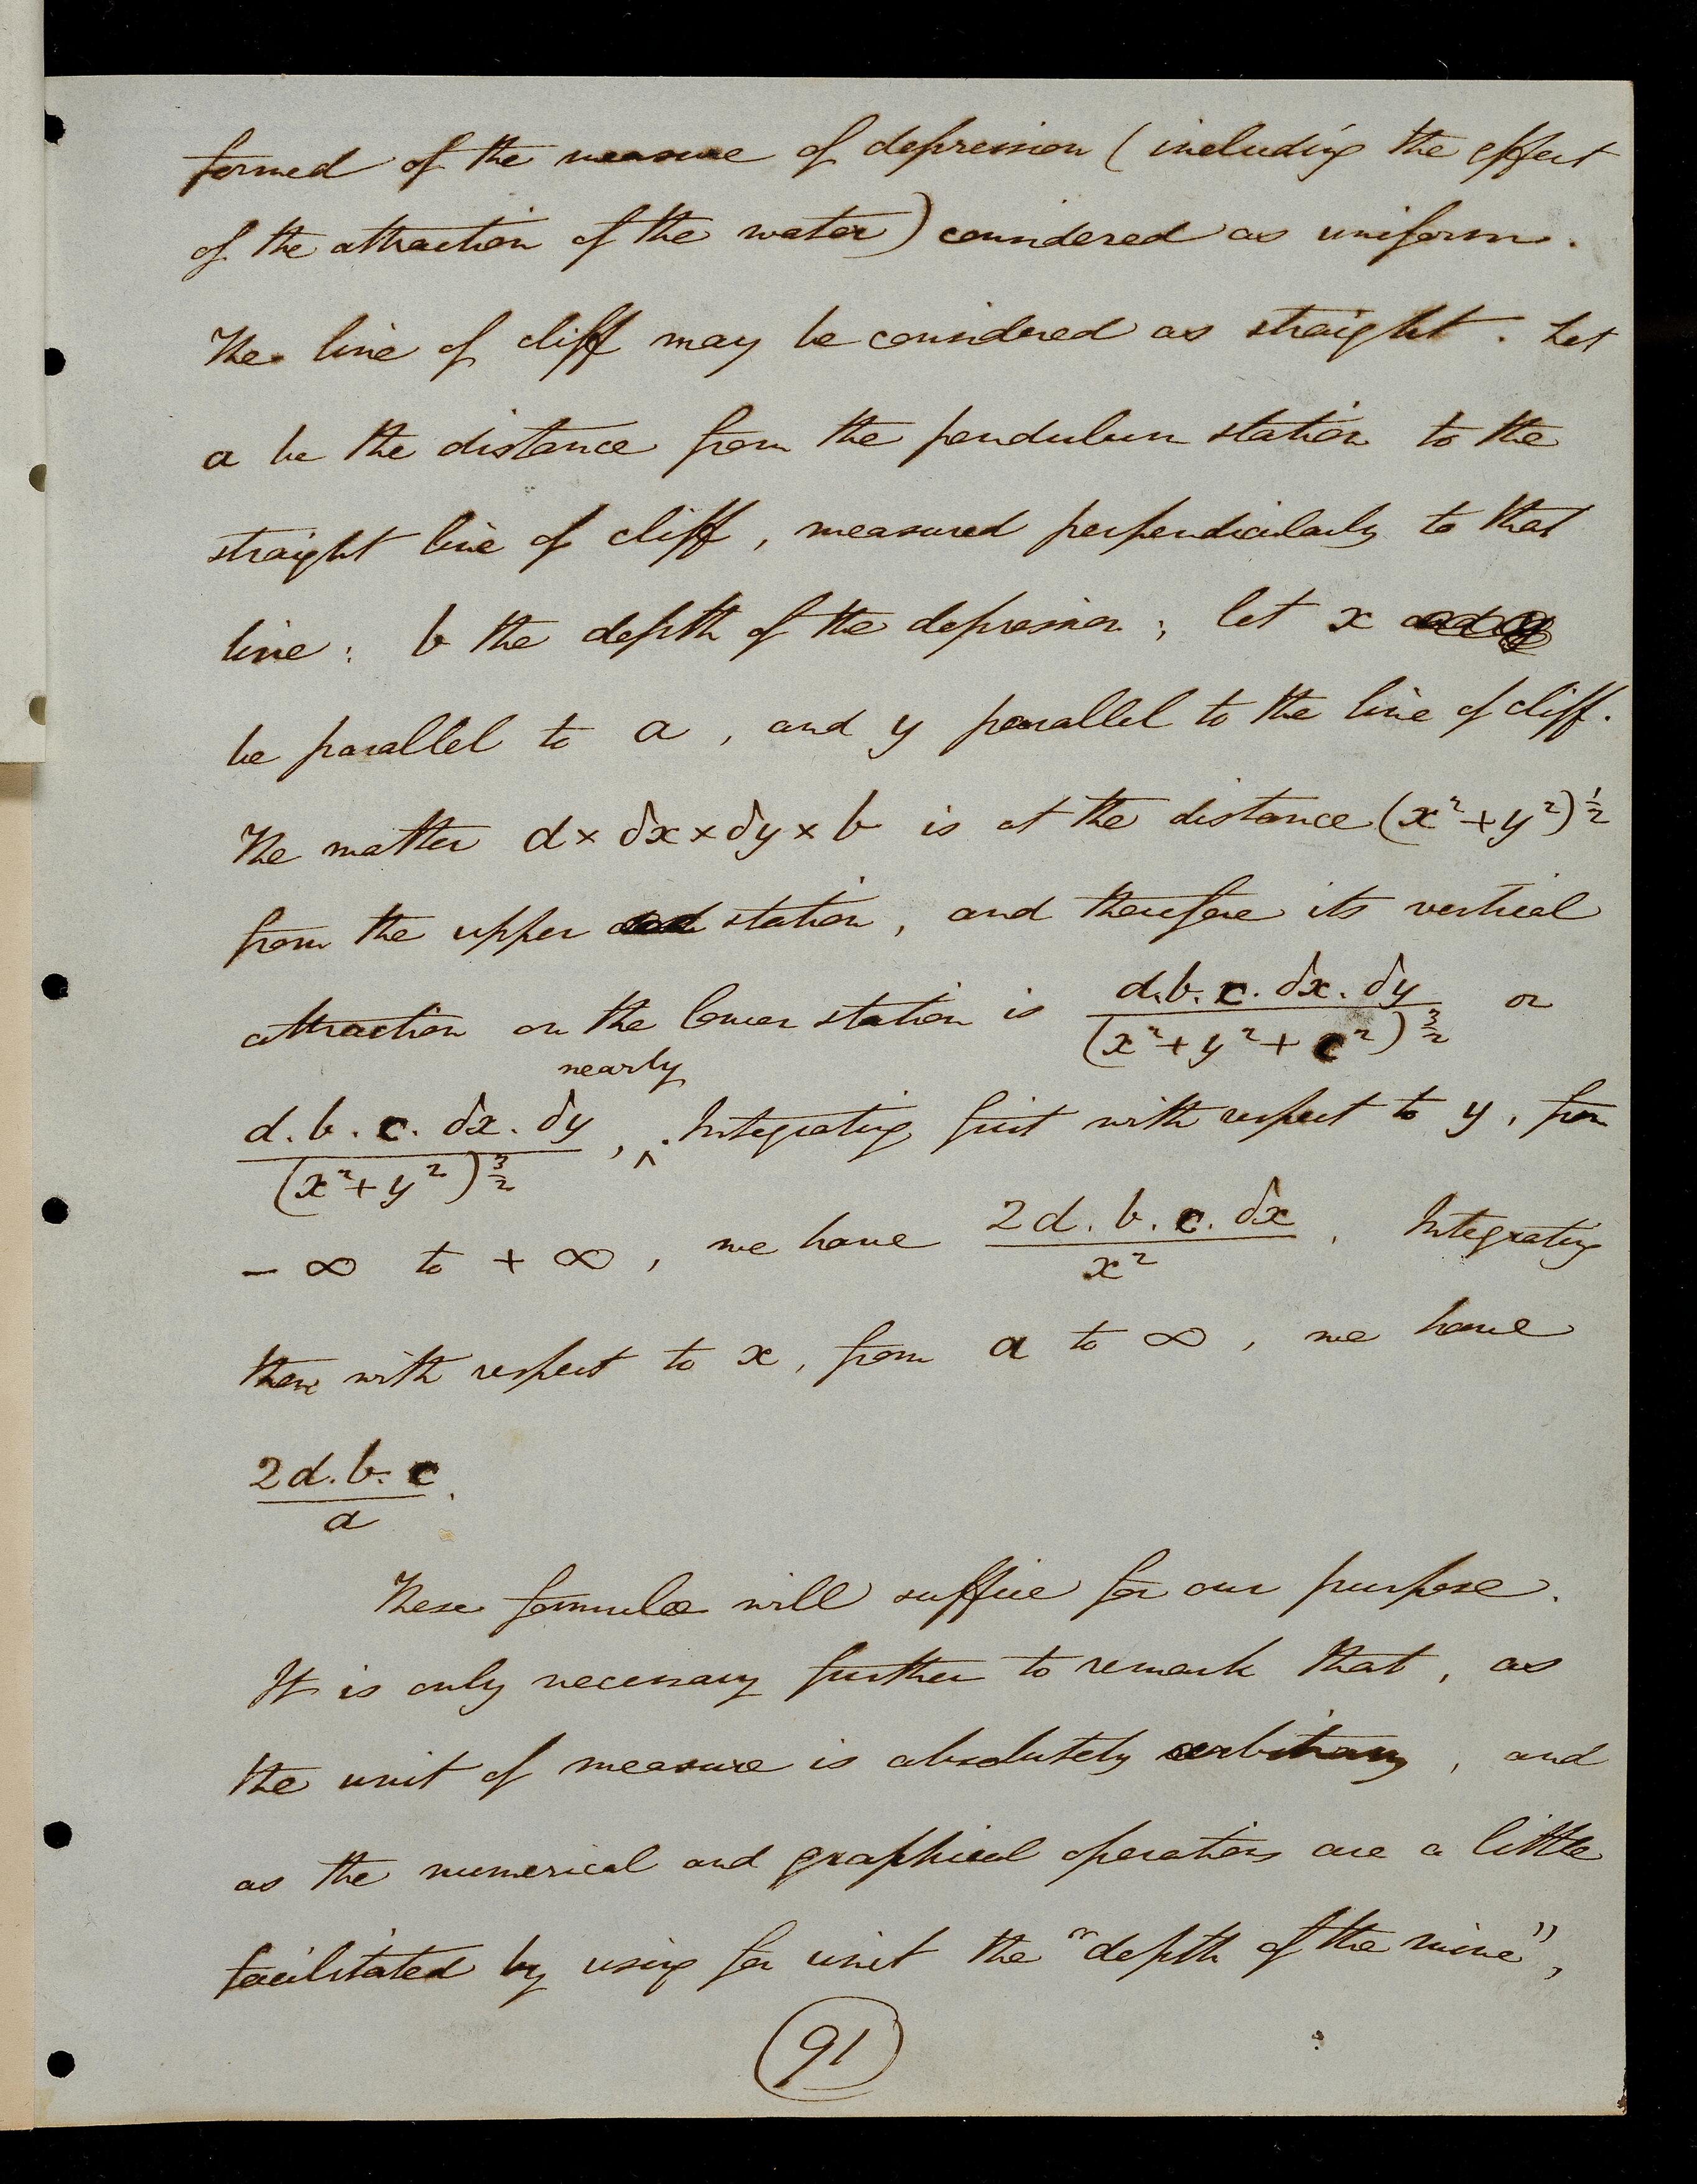 formed of the measure of depression (including the effect
of the attraction of the water) considered as uniform.
The line of cliff may be considered as straight. Let
a be the distance from the pendulum station to the
straight line of cliff, measured perpendicularly to that
line; b the depth of the depression; let x
be parallel to a, and y parallel to the line of cliff.
The matter d × δx × δy × b is at the distance (x²+y²)^½
from the upper station, and therefore its vertical
attraction on the lower station is d.b.c.δx.δy / (x²+y²+c²)^(3/2) or
nearly
d.b.c.δx.δy / (x²+y²)^(3/2), ‸. Integrating first with respect to y, from
− ∞ to + ∞, we have 2d.b.c.δx / x². Integrating
then with respect to x, from a to ∞, we have
2d.b.c / a.
These formulæ will suffice for our purpose.
It is only necessary further to remark that, as
the unit of measure is absolutely arbitrary, and
as the numerical and graphical operations are a little
facilitated by using for unit the "depth of the mine",
91